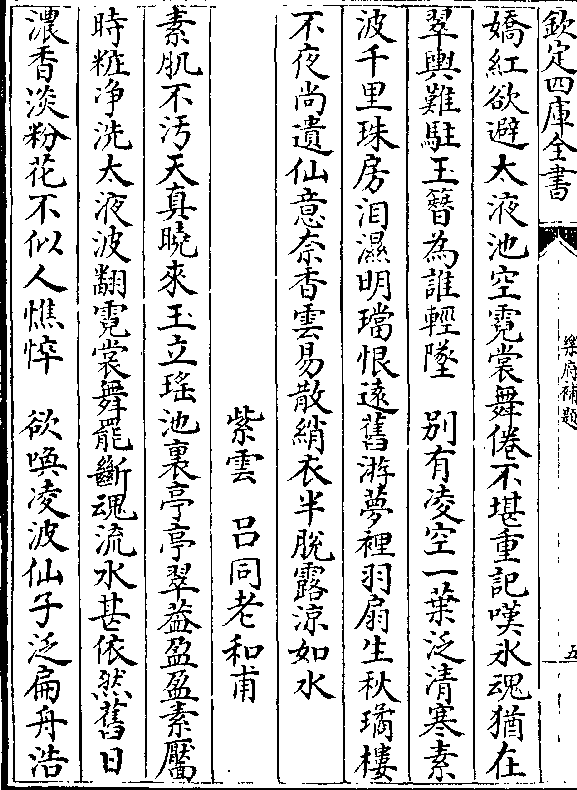 欽定四庫全書
樂府補題
五
嬌紅欲避太液池空霓裳舞倦不堪重記嘆氷魂猶在
翠輿難駐玉簪為誰輕墜　别有凌空一葉泛清寒素
波千里珠房泪濕明璫恨遠舊游夢裡羽扇生秋璚樓
不夜尚遺仙意奈香雲易散綃衣半脱露凉如水
紫雲　吕同老和甫
素肌不汚天真曉來玉立瑤池裏亭亭翠葢盈盈素靨
時粧净洗太液波翻霓裳舞罷斷魂流水甚依然舊日
濃香淡粉花不似人憔悴　欲喚凌波仙子泛扁舟浩